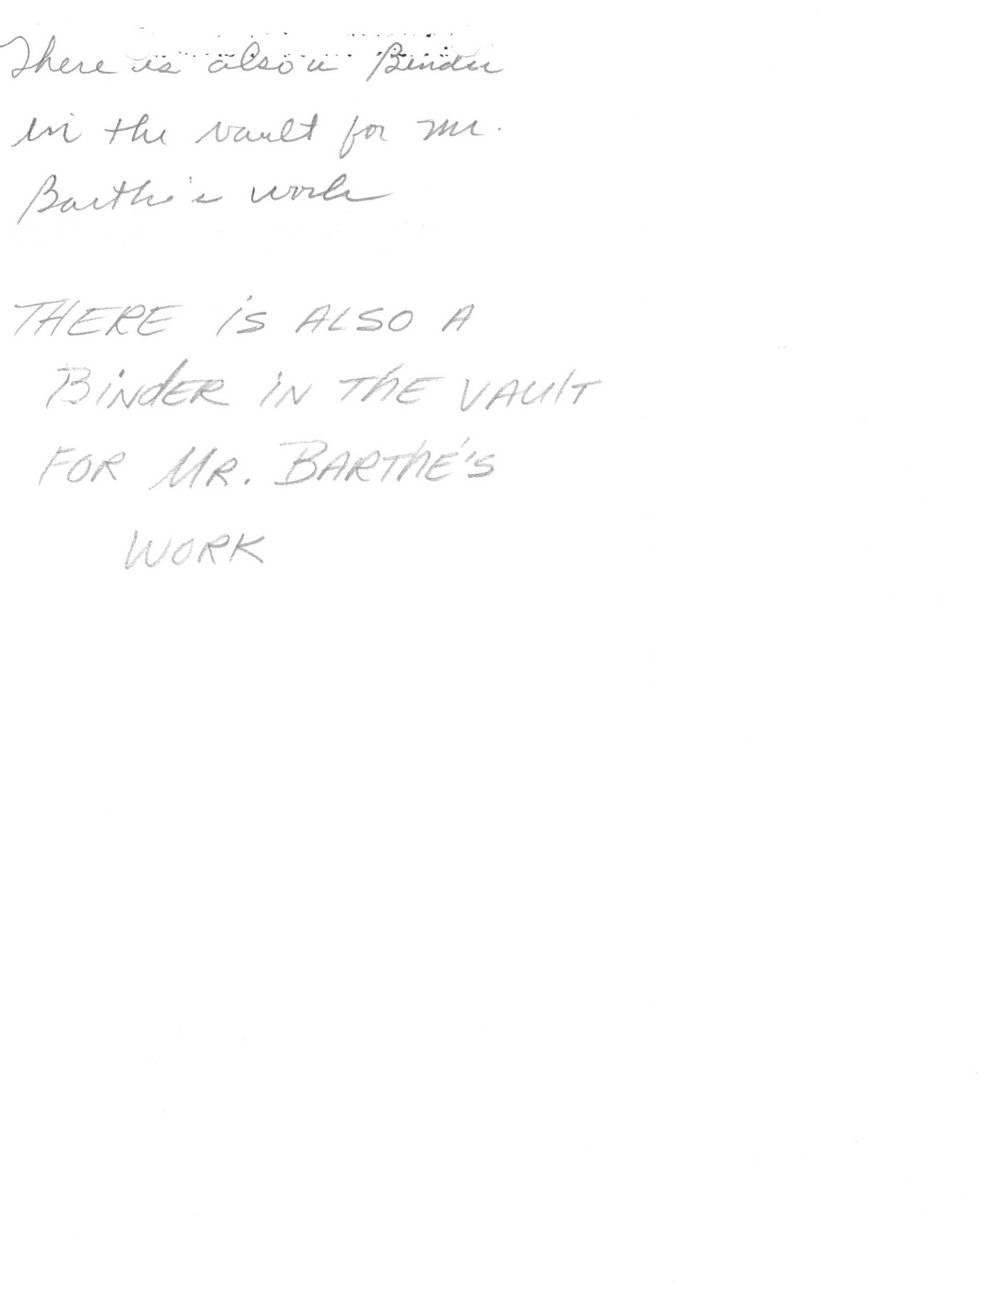 There is also a Binder
in the vault for Mr.
Barthé's work
THERE iS ALSO A
BiNdER iN ThE VAUlT
FOR MR. BARThÉ'S
WORK